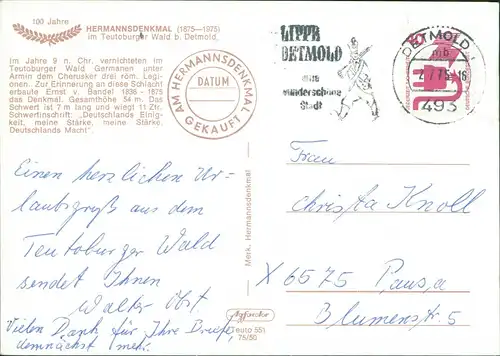 100 Jahre
HERMANNSDENKMAL (1875—1975)
im Teutoburger Wald b. Detmold,
Im Jahre 9 n. Chr. vernichteten im
Teutoburger Wald Germanen unter
Armin dem Cherusker drei röm. Legi-
onen. Zur Erinnerung an diese Schlacht
erbaute Ernst v. Bandel 1838 - 1875
das Denkmal. Gesamthöhe 54 m. Das
Schwert ist 7 m lang und wiegt 11 Ztr.
Schwertinschrift: „Deutschlands Einig-
keit, meine Stärke. meine Stärke,
Deutschlands Macht".
AM HERMANNSDENKMAL
DATUM
GEKAUFT
LIPPE
DETMOLD
eine
wunderschöne
Stadt
DETMOLD 1
mb
16
493
Einen herzlichen Ur-
laubsgruß aus dem
Teutoburger Wald
sendet Ihnen
Walter Obst
Vielen Dank für Ihre Briefe,
demnächst mehr.
Merk, Hermannsdenkmal
Teuto 551
75/50
Frau
Christa Knoll
X 6575 Pausa
Blumenstr. 5